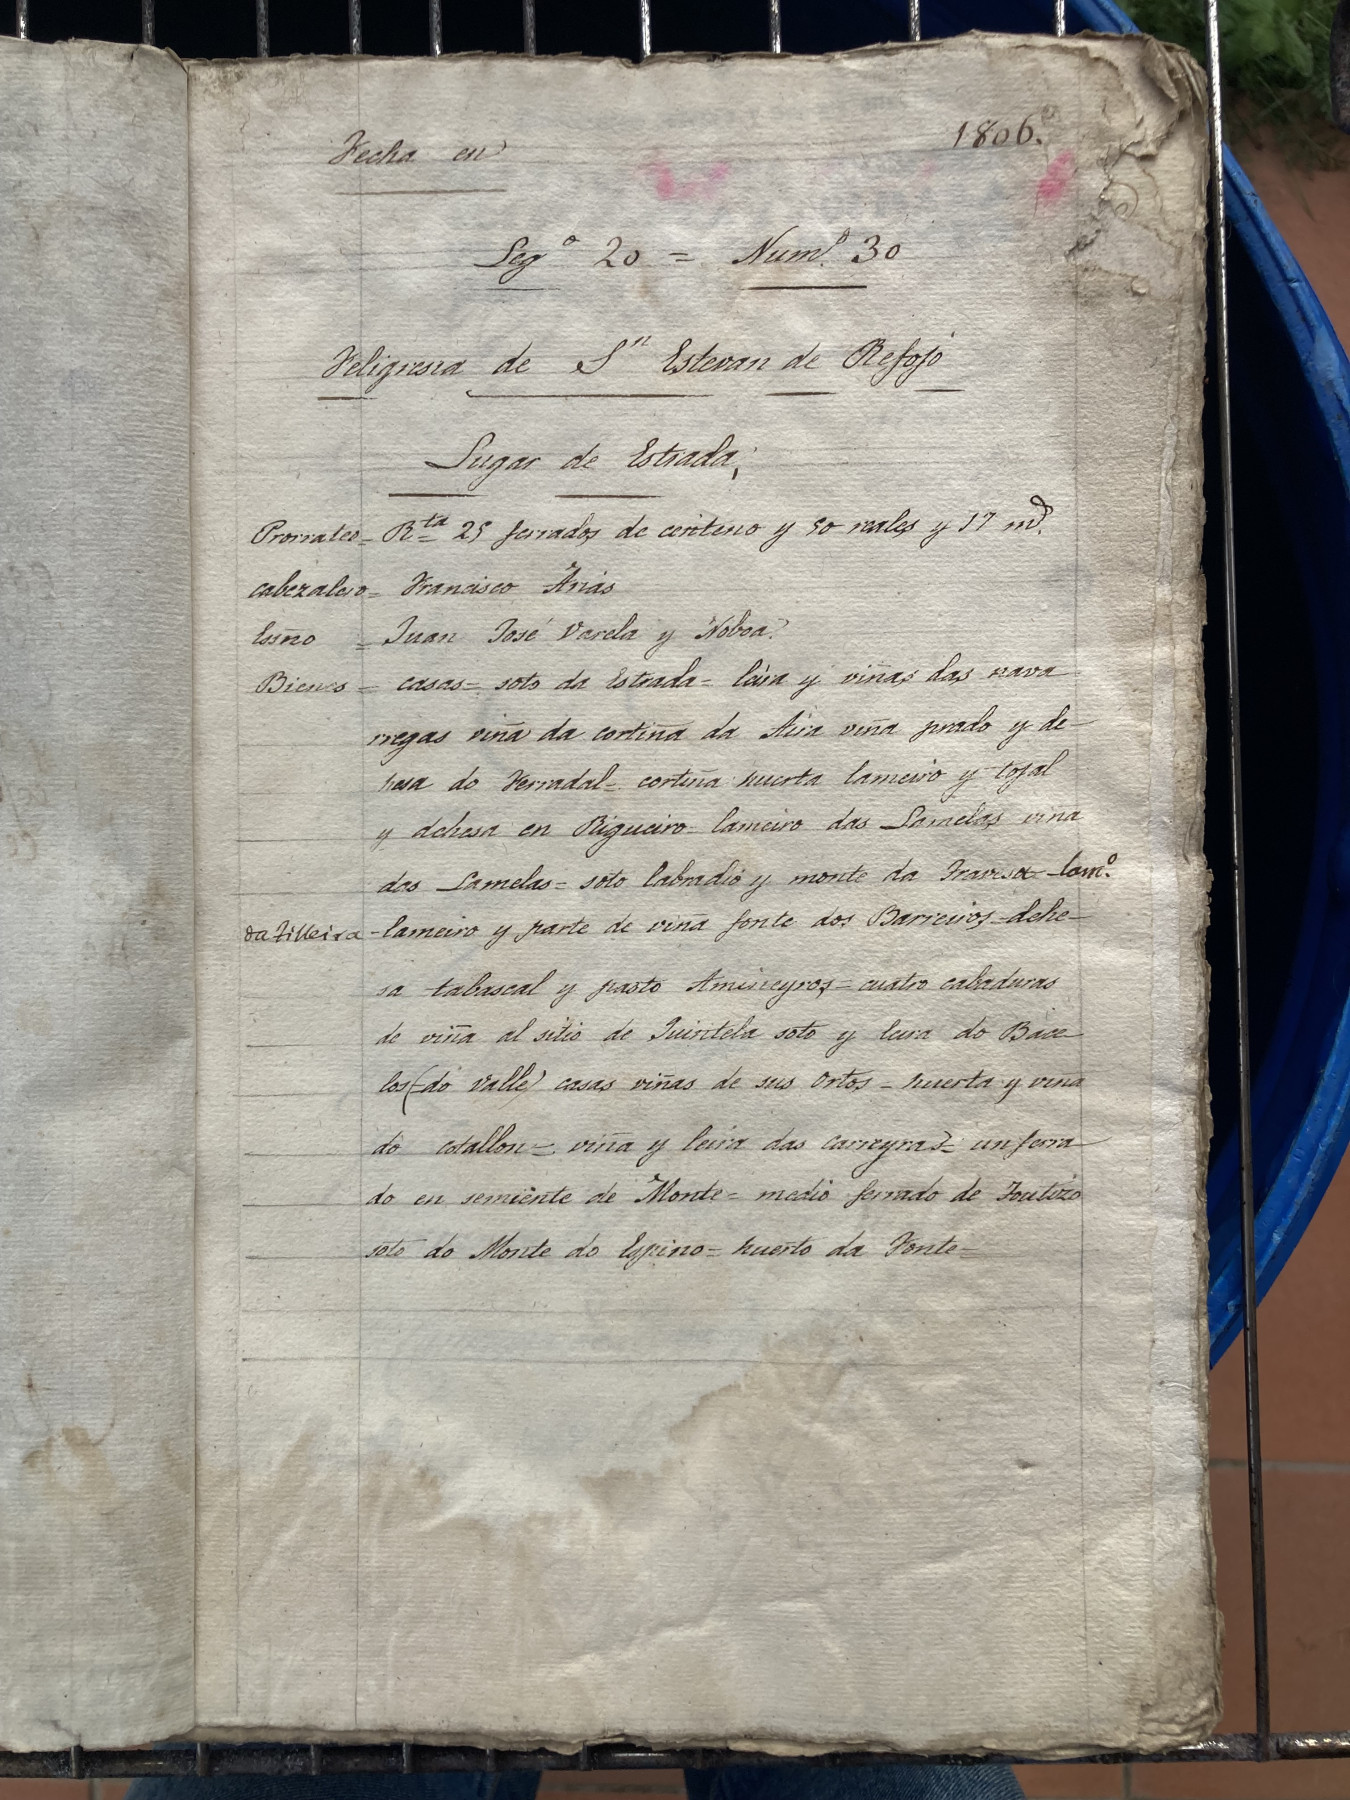 Fecha en 1806.
Legº 20 = Numº 30
Feligresia de Sn Estevan de Refojo
Lugar de Estrada,
Prorrateo = Rta 25 ferrados de centeno y 50 reales y 17 mrs.
cabezalero = Francisco Arias
Essño = Juan José Varela y Noboa.
Bienes = casas = soto da Estrada = leira y viñas das nava
rregas viña da cortiña da Aira viña prado y de
hesa do Ferradal = cortiña huerta lameiro y tojal
y dehesa en Rigueiro lameiro das Lamelas viña
das Lamelas = soto labradio y monte da Travesa - lamº
da Tilleira - lameiro y parte de viña fonte dos Barreiros - dehe
sa tabascal y pasto Amineyros = cuatro cabaduras
de viña al sitio de Quintela soto y leira do Bace
los (do Valle) casas viñas de sus Ortos = huerta y viña
do cotallon = viña y leira das carreyras = un ferra
do en semiente de Monte = medio ferrado de Toutizo
soto do Monte do Espino = huerto da Fonte =